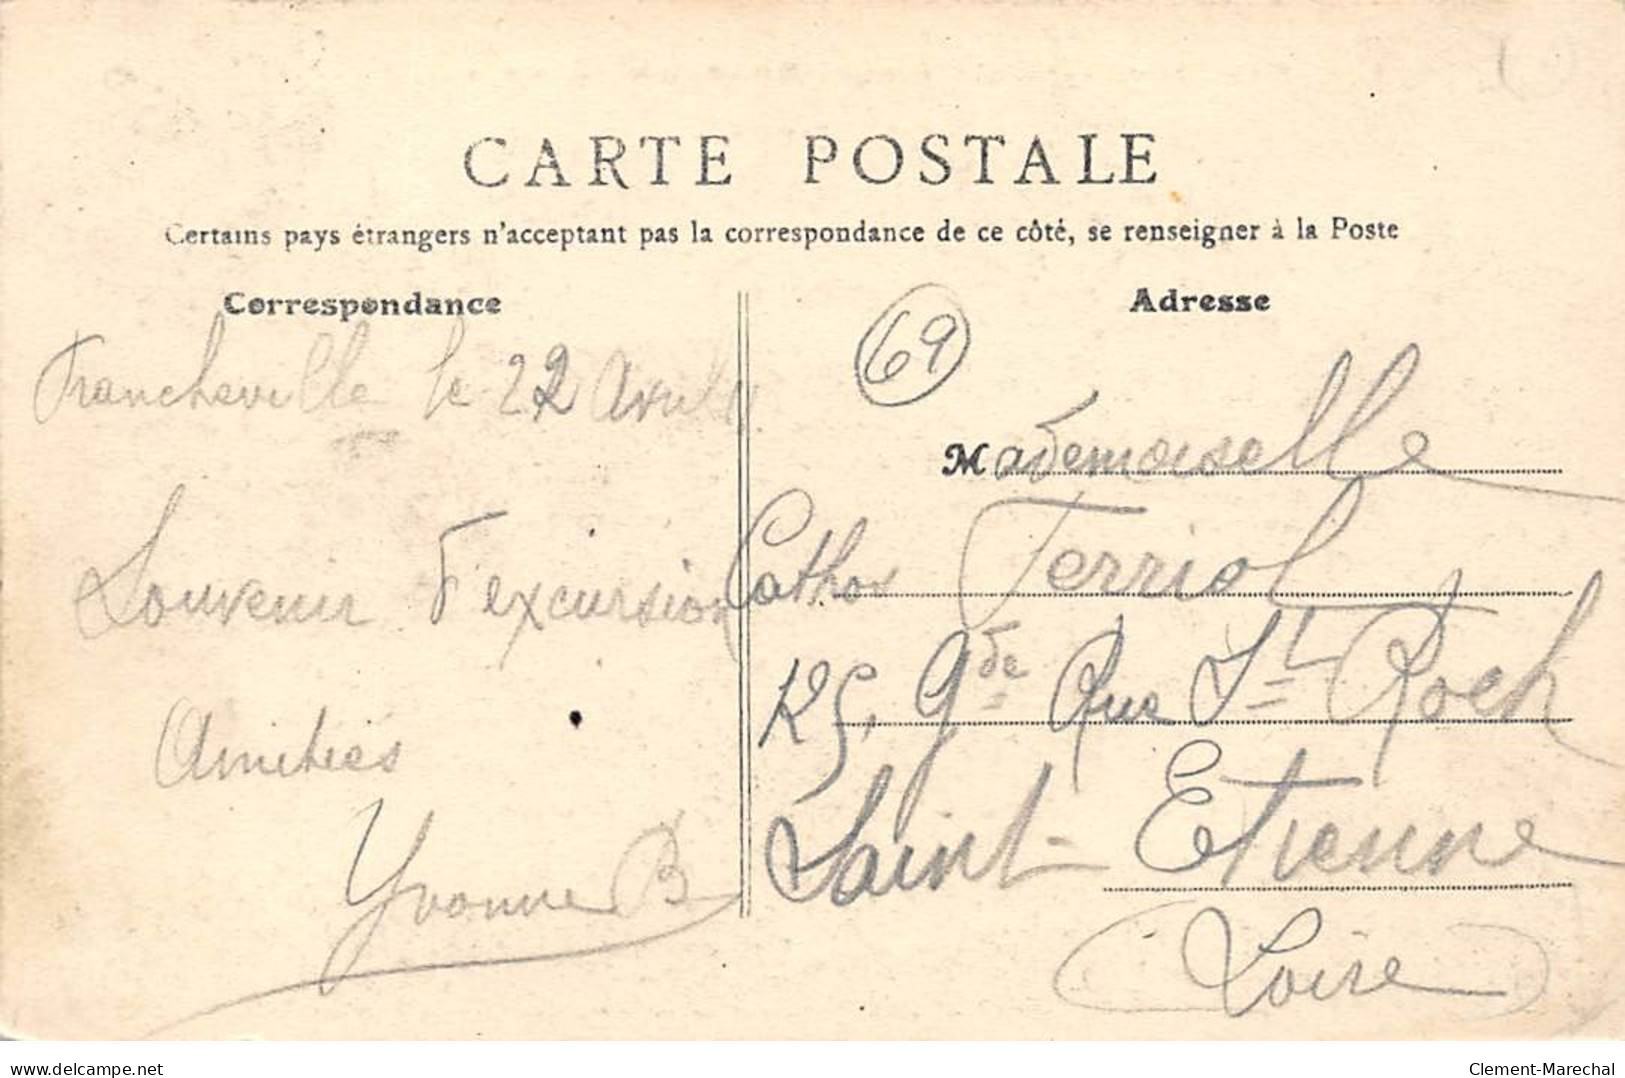 CARTE POSTALE
Certains pays étrangers n'acceptant pas la correspondance de ce côté, se renseigner à la Poste
Correspondance
Francheville le 22 Avril
Souvenir d'excursion
Amitiés
Yvonne B
Adresse
69
Mademoiselle
Ferriol
25, Gde Rue St Roch
Saint-Etienne
(Loire)
delcampe.net
Clement-Marechal